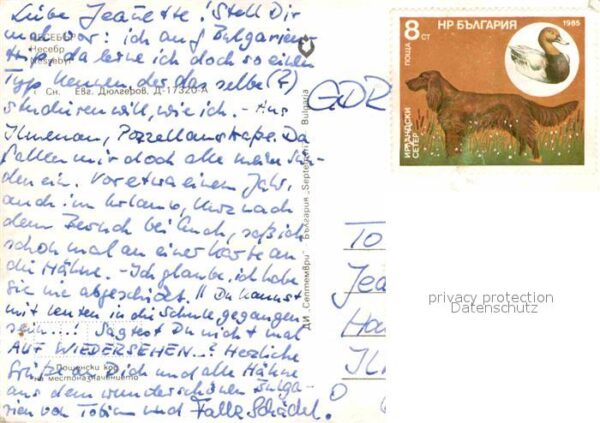 Liebe Jeanette! Stell Dir
mal vor: ich auf Bulgarien-
trip, da lerne ich doch so einen
Typ kennen, der das selbe (?)
studieren will, wie ich. - Aus
Ilmenau, Porzellanstraße. Da
fallen mir doch alle mein Sün-
den ein. Vor etwa einem Jahr,
auch im Urlaub, kurz nach
dem Besuch bei Euch, saß ich
schon mal an einer Karte an
die Hähne. - Ich glaube, ich habe
sie nie abgeschickt. !! Du kannst
mit Leuten in die Schule gegangen
sein...! Sagtest Du nicht mal
AUF WIEDERSEHEN...? Herzliche
Grüße an Dich und alle Hähne
aus dem wunderschönen Bulga-
rien von Tobias und Falla Schädel.
Несебр
Nessebre
Сн. Евг. Дюлгеров, Д-17320-А
Пощенски код
на местоназначението
ДИ „Септември" България „Septemvri" Bulgaria
GDR
НР БЪЛГАРИЯ
1985
8 СТ
ПОЩА
ИРЛАНДСКИ
СЕТЕР
TO
Jea
Ha
IL
O 6
privacy protection
Datenschutz